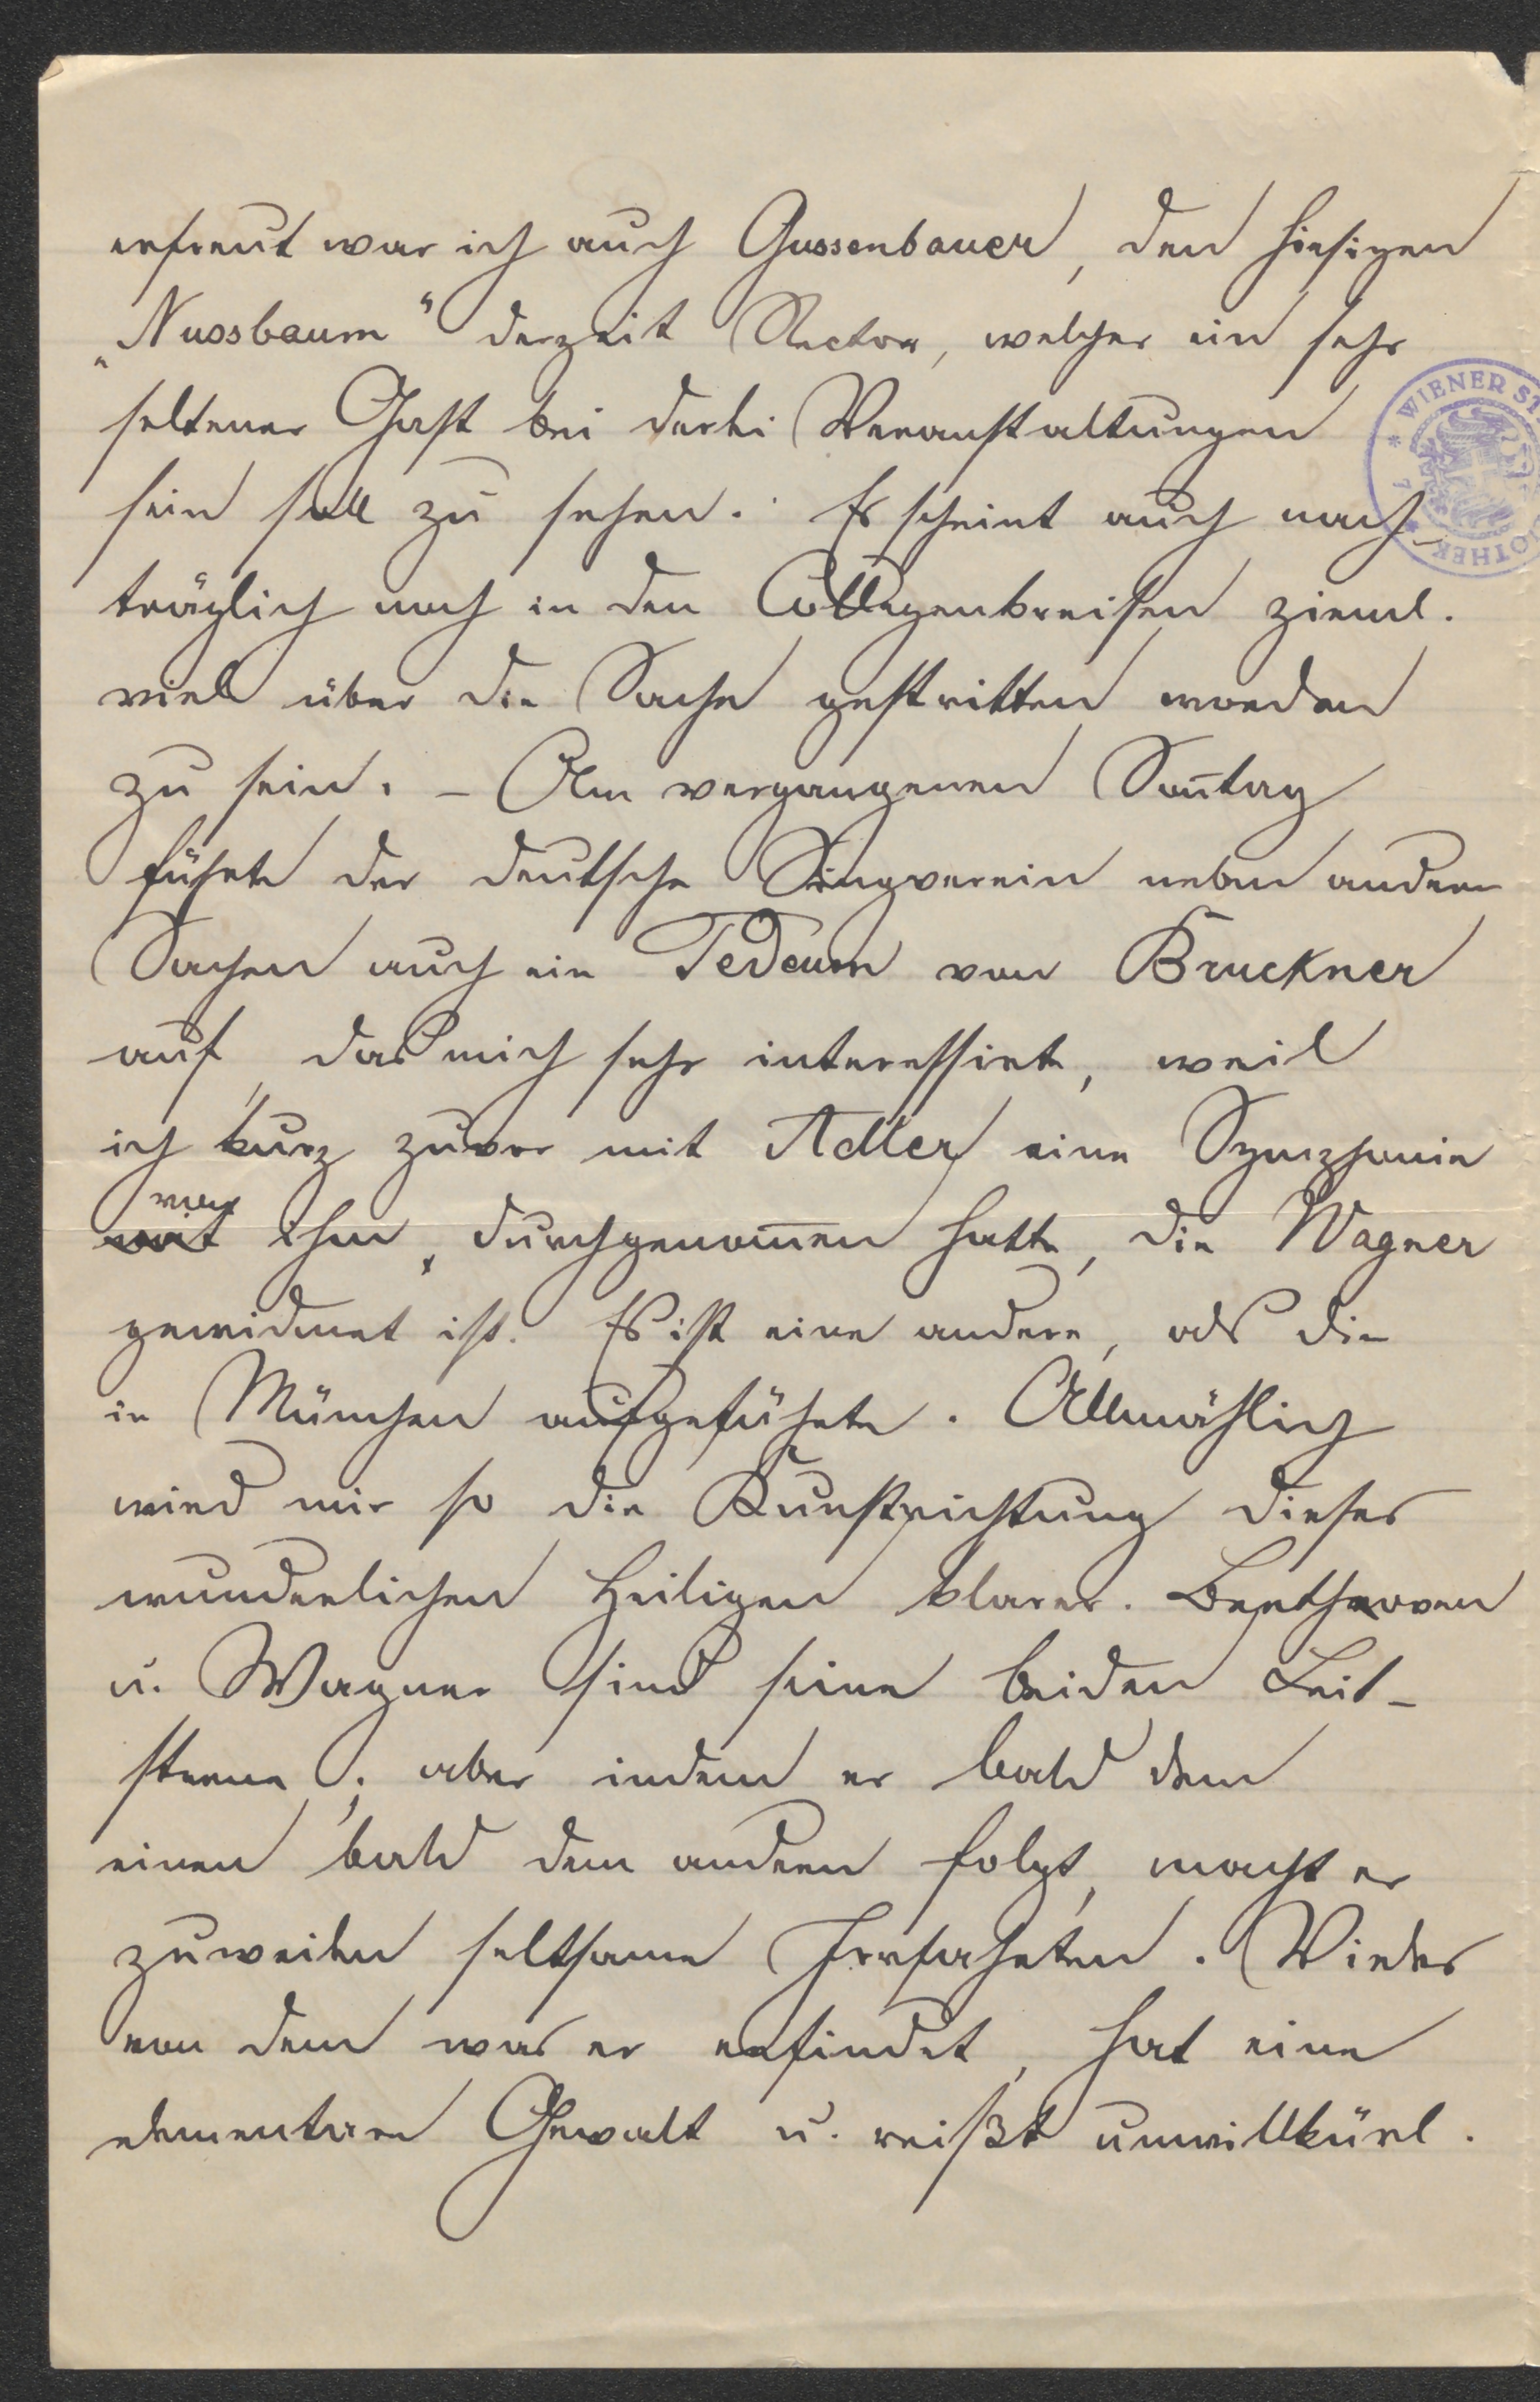 erfreut war ich auch Gussenbauer, den hiesigen
„Nussbaum“ derzeit Rector, welcher ein sehr
seltener Gast bei derlei Veranstaltungen
sein soll zu sehen. Es scheint auch nach-
träglich noch in den Collegenkreisen zieml.
viel über die Sache gestritten worden
zu sein. – Am vergangenen Soñtag
führte der deutsche Singverein neben andern
Sachen auch ein Tedeum von Bruckner
auf, das mich sehr interessirte, weil
ich kurz zuvor mit Adler eine Symphonie
von
mit ihm, durchgenom̅en hatte, die Wagner
gewidmet ist. Es ist eine andere, als die
in München aufgeführte. Allmählich
wird mir so die Kunstrichtung dieses
wunderlichen Heiligen klarer. Beethoven
u. Wagner sind seine beiden Leit-
sterne; aber indem er bald dem
einen bald dem andern folgt, macht er
zuweilen seltsame Irrfahrten. Vieles
von dem was er erfindet, hat eine
elementare Gewalt u. reißt unwillkürl.
WIENER ST
OTHEK